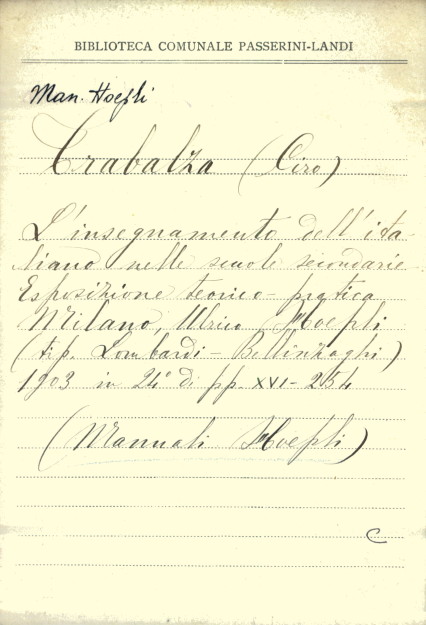 BIBLIOTECA COMUNALE PASSERINI-LANDI
Man. Hoepli
Trabalza (Ciro)
L'insegnamento dell'ita-
liano nelle scuole secondarie
Esposizione teorico-pratica
Milano, Ulrico Hoepli
(tip. Lombardi - Bellinzaghi)
1903 in 24° di pp. XVI-254
(Manuali Hoepli)
C